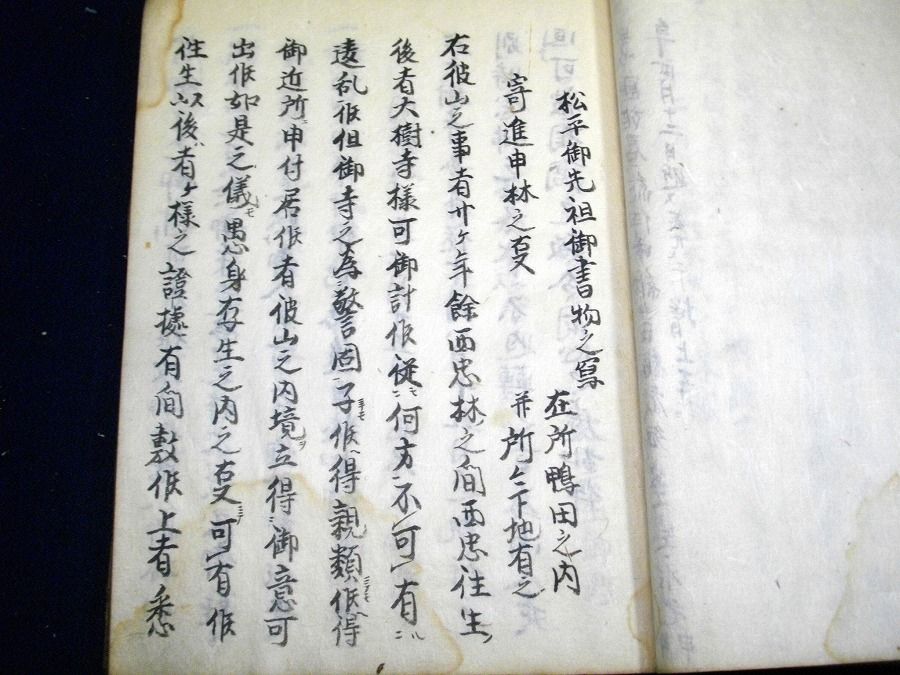 松平御先祖御書物之寫
寄進申林之叓
在所鴨田之内
并所々下地有之
右彼山之事者廿ヶ年餘西忠林之間西忠往生ノ
後者大樹寺様可御計候従何方不可有
違乱候但御寺之為警固子候得親類候得
御近所申付居候者彼山之内境立得御意可
出候如是之儀愚身存生之内之叓可有候
往生以後者ヶ様之證據有間敷候上者悉